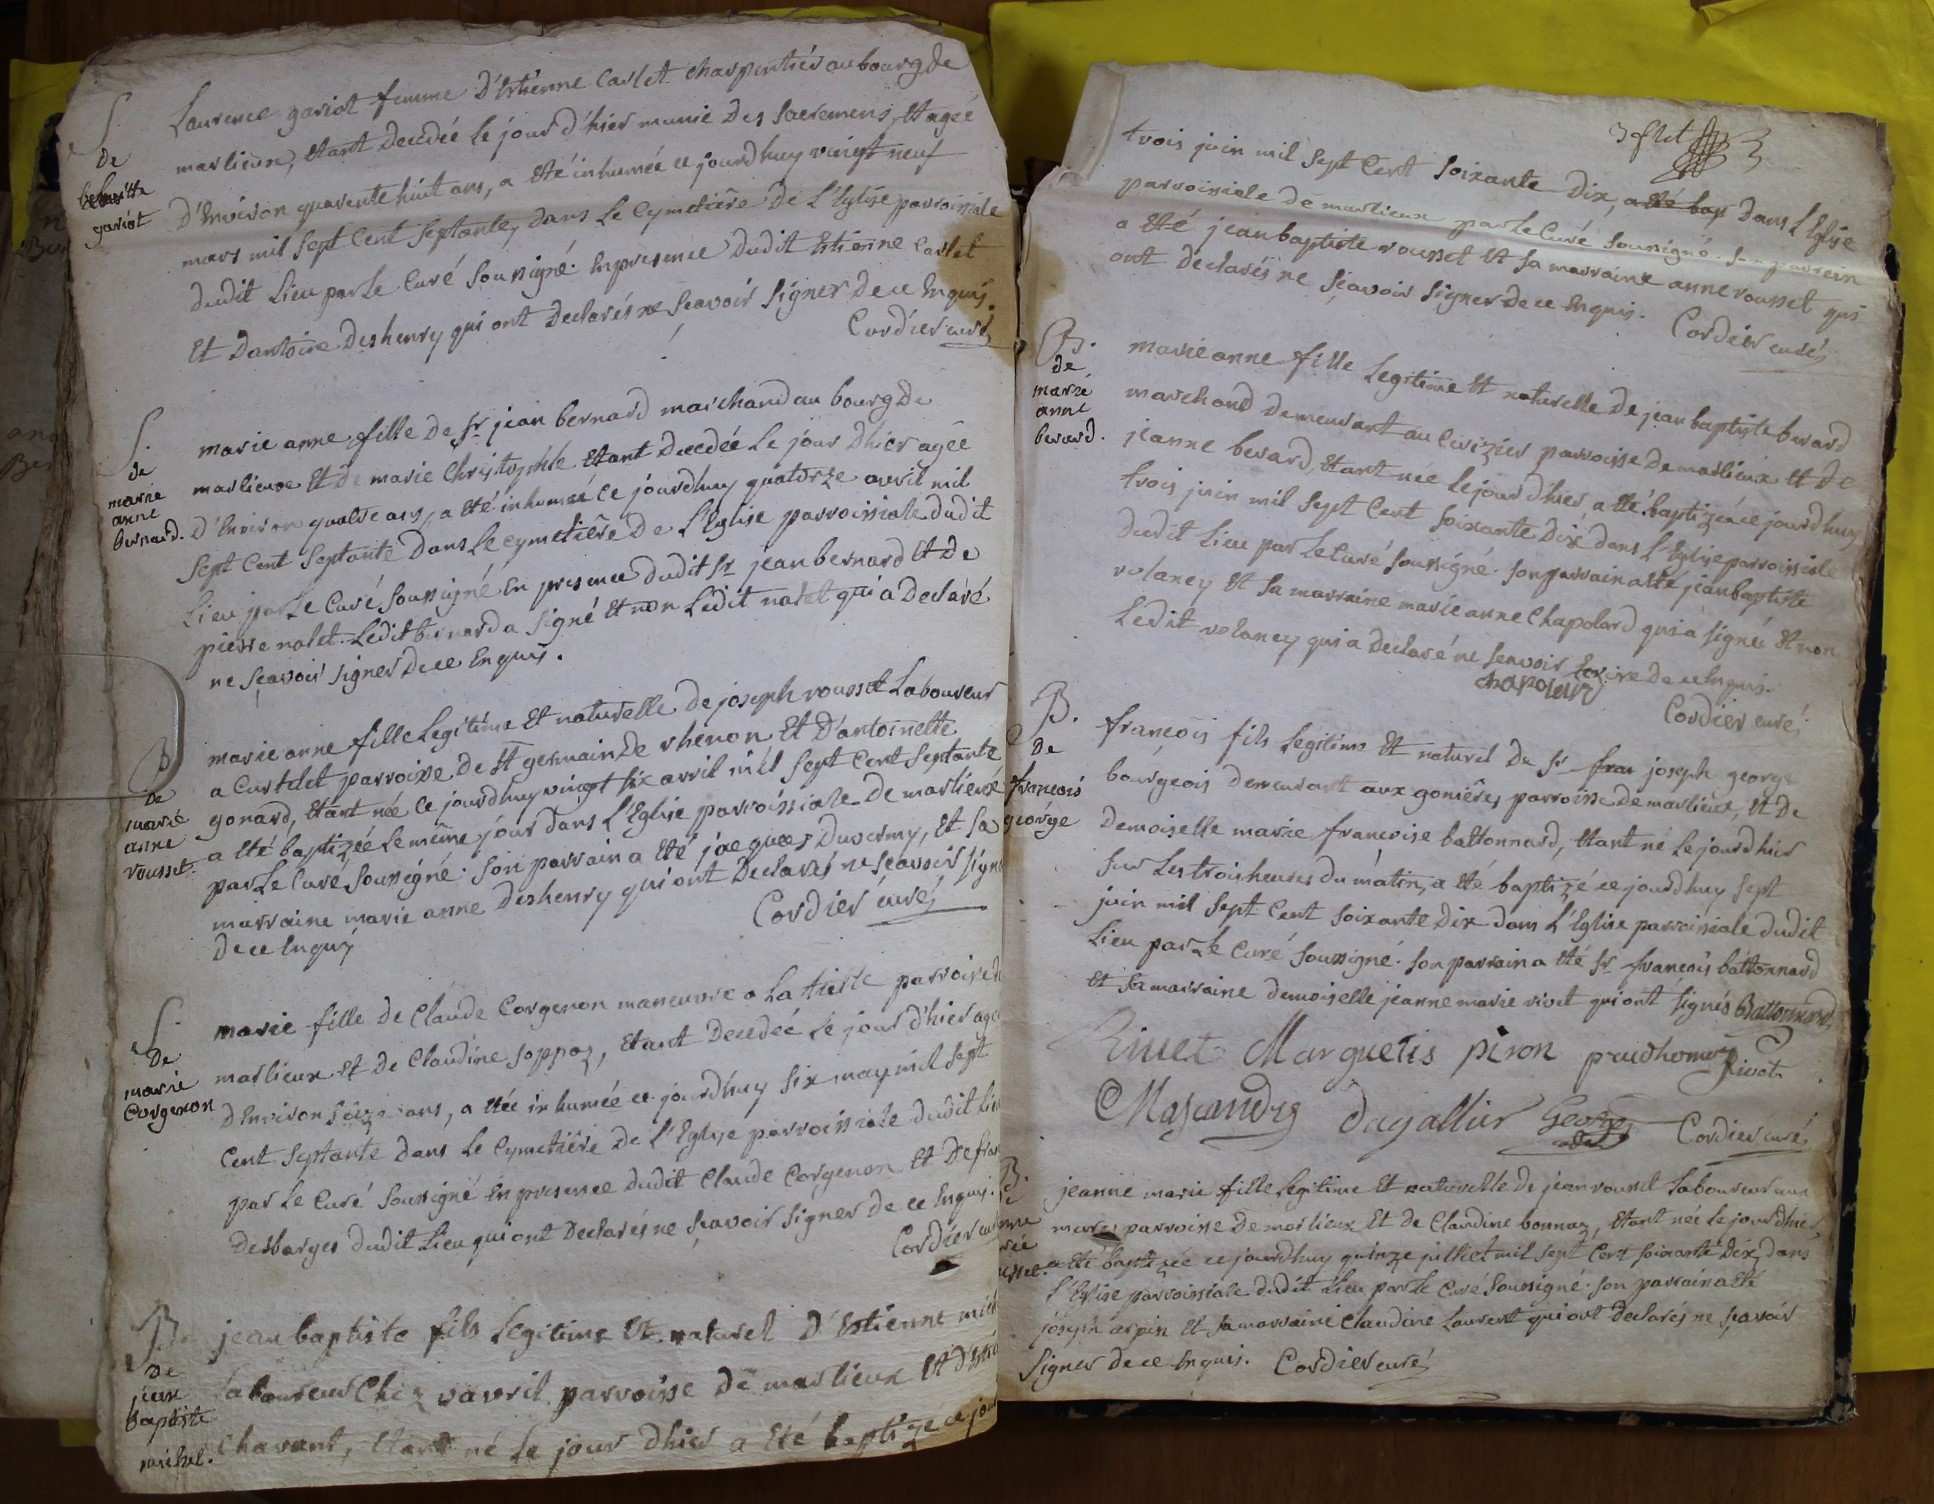 S.
De
gariot
Laurence gariot femme D'Estienne Carlet charpentier au bourg de
marlieux, Etant Decedée le jour d'hier munie Des Sacremens, et agée
D'Environ quarente huit ans, a Eté inhumée ce jourdhuy vingt neuf
mars mil Sept Cent Septante, dans Le Cymetière De L'Eglise parroissiale
dudit Lieu par Le Curé Soussigné. En presence dudit Estienne Carlet
Et D'antoine Deshenry qui ont Declarés ne Sçavoir Signer De ce Enquis.
Cordier curé
S.
de
marie
anne
bernard.
marie anne fille De Sr jean bernard marchand au bourg De
marlieux Et De marie Christophle Etant Decedée Le jour D'hier agée
D'Environ quatre ans, a Eté inhumée Ce jourdhuy quatorze avril mil
Sept Cent Septante Dans Le Cymetière De L'Eglise parroissiale dudit
Lieu par Le Curé Soussigné En presence dudit Sr jean bernard Et De
pierre nolet. Ledit bernard a Signé Et non Ledit nolet qui a Declaré
ne Sçavoir Signer De ce Enquis.
B
De
marie
anne
rousset.
marie anne fille Legitime Et naturelle de joseph rousset Laboureur
a Curtelet parroisse de St germain de rhenon Et D'antoinette
gonard, Etant née Ce jourdhuy vingt six avril mil Sept Cent Septante
a Eté baptizée Le même jour dans L'Eglise parroissiale De marlieux
par Le Curé Soussigné. Son parrain a Eté jacques Duvermy, Et Sa
marraine marie anne Deshenry qui ont Declarés ne Sçavoir Signer
De ce Enquis
Cordier curé
S.
De
marie
Corgenon
marie fille de Claude Corgenon maneuvre a La parroisse de
marlieux Et de Claudine soppoz, Etant Decedée Le jour d'hier agée
D'Environ Seize ans, a Eté inhumée ce jourdhuy Six may mil Sept
Cent Septante dans Le Cymetière De L'Eglise parroissiale dudit Lieu
par Le Curé Soussigné En presence dudit Claude Corgenon Et De fran
Desbarges dudit Lieu qui ont Declarés ne Sçavoir Signer de ce Enquis.
Cordier curé
B.
De
jean
baptiste
michel.
jean baptiste fils Legitime Et naturel D'Estienne mich
Laboureur Chez vavril parroisse de marlieux Et D'
Chavant, Etant né Le jour d'hier a Eté baptizé ce jour
trois juin mil Sept Cent Soixante Dix, a Eté bap dans L'Eglise
parroissiale de marlieux par Le Curé Soussigné. Son parrein
a Eté jean baptiste rousset Et Sa marraine anne rousset qui
ont Declarés ne Sçavoir Signer De ce Enquis.
Cordier curé
B.
de
marie
anne
berard.
marie anne fille Legitime Et naturelle De jean baptiste berard
marchand demeurant au Cerizier parroisse De marlieux Et De
jeanne berard, Etant née Le jour d'hier, a Eté baptizée ce jourdhuy
trois juin mil Sept Cent Soixante Dix dans L'Eglise parroissiale
dudit Lieu par Le Curé Soussigné. Son parrain a Eté jean baptiste
volancy Et Sa marraine marie anne Chapolard qui a Signé Et non
Ledit volancy qui a Declaré ne Sçavoir Ecrire De ce Enquis.
chapolard
Cordier curé
B.
De
françois
george
françois fils Legitime Et naturel Du Sr fran joseph george
bourgeois demeurant aux gonières parroisse De marlieux, Et De
Demoiselle marie françoise battonnard, Etant né Le jour d'hier
sur Les trois heures du matin, a Eté baptizé ce jourdhuy Sept
juin mil Sept Cent Soixante Dix dans L'Eglise parroissiale dudit
Lieu par Le Curé Soussigné. Son parrain a Eté Sr françois battonnard
Et Sa marraine demoiselle jeanne marie rivet qui ont Signés Battonnard
Rivet Marguetis piron prudhome
Dagallier George Cordier curé
B.
De
jeanne marie fille Legitime Et naturelle De jean rousset Laboureur aux
mares parroisse De marlieux Et de Claudine bonnaz, Etant née Le jour d'hier
a Eté baptizée ce jourdhuy quinze juillet mil Sept Cent Soixante Dix dans
L'Eglise parroissiale dudit Lieu par Le Curé Soussigné. Son parrain a Eté
joseph arpin Et Sa marraine Claudine Laurent qui ont Declarés ne Sçavoir
Signer De ce Enquis. Cordier curé